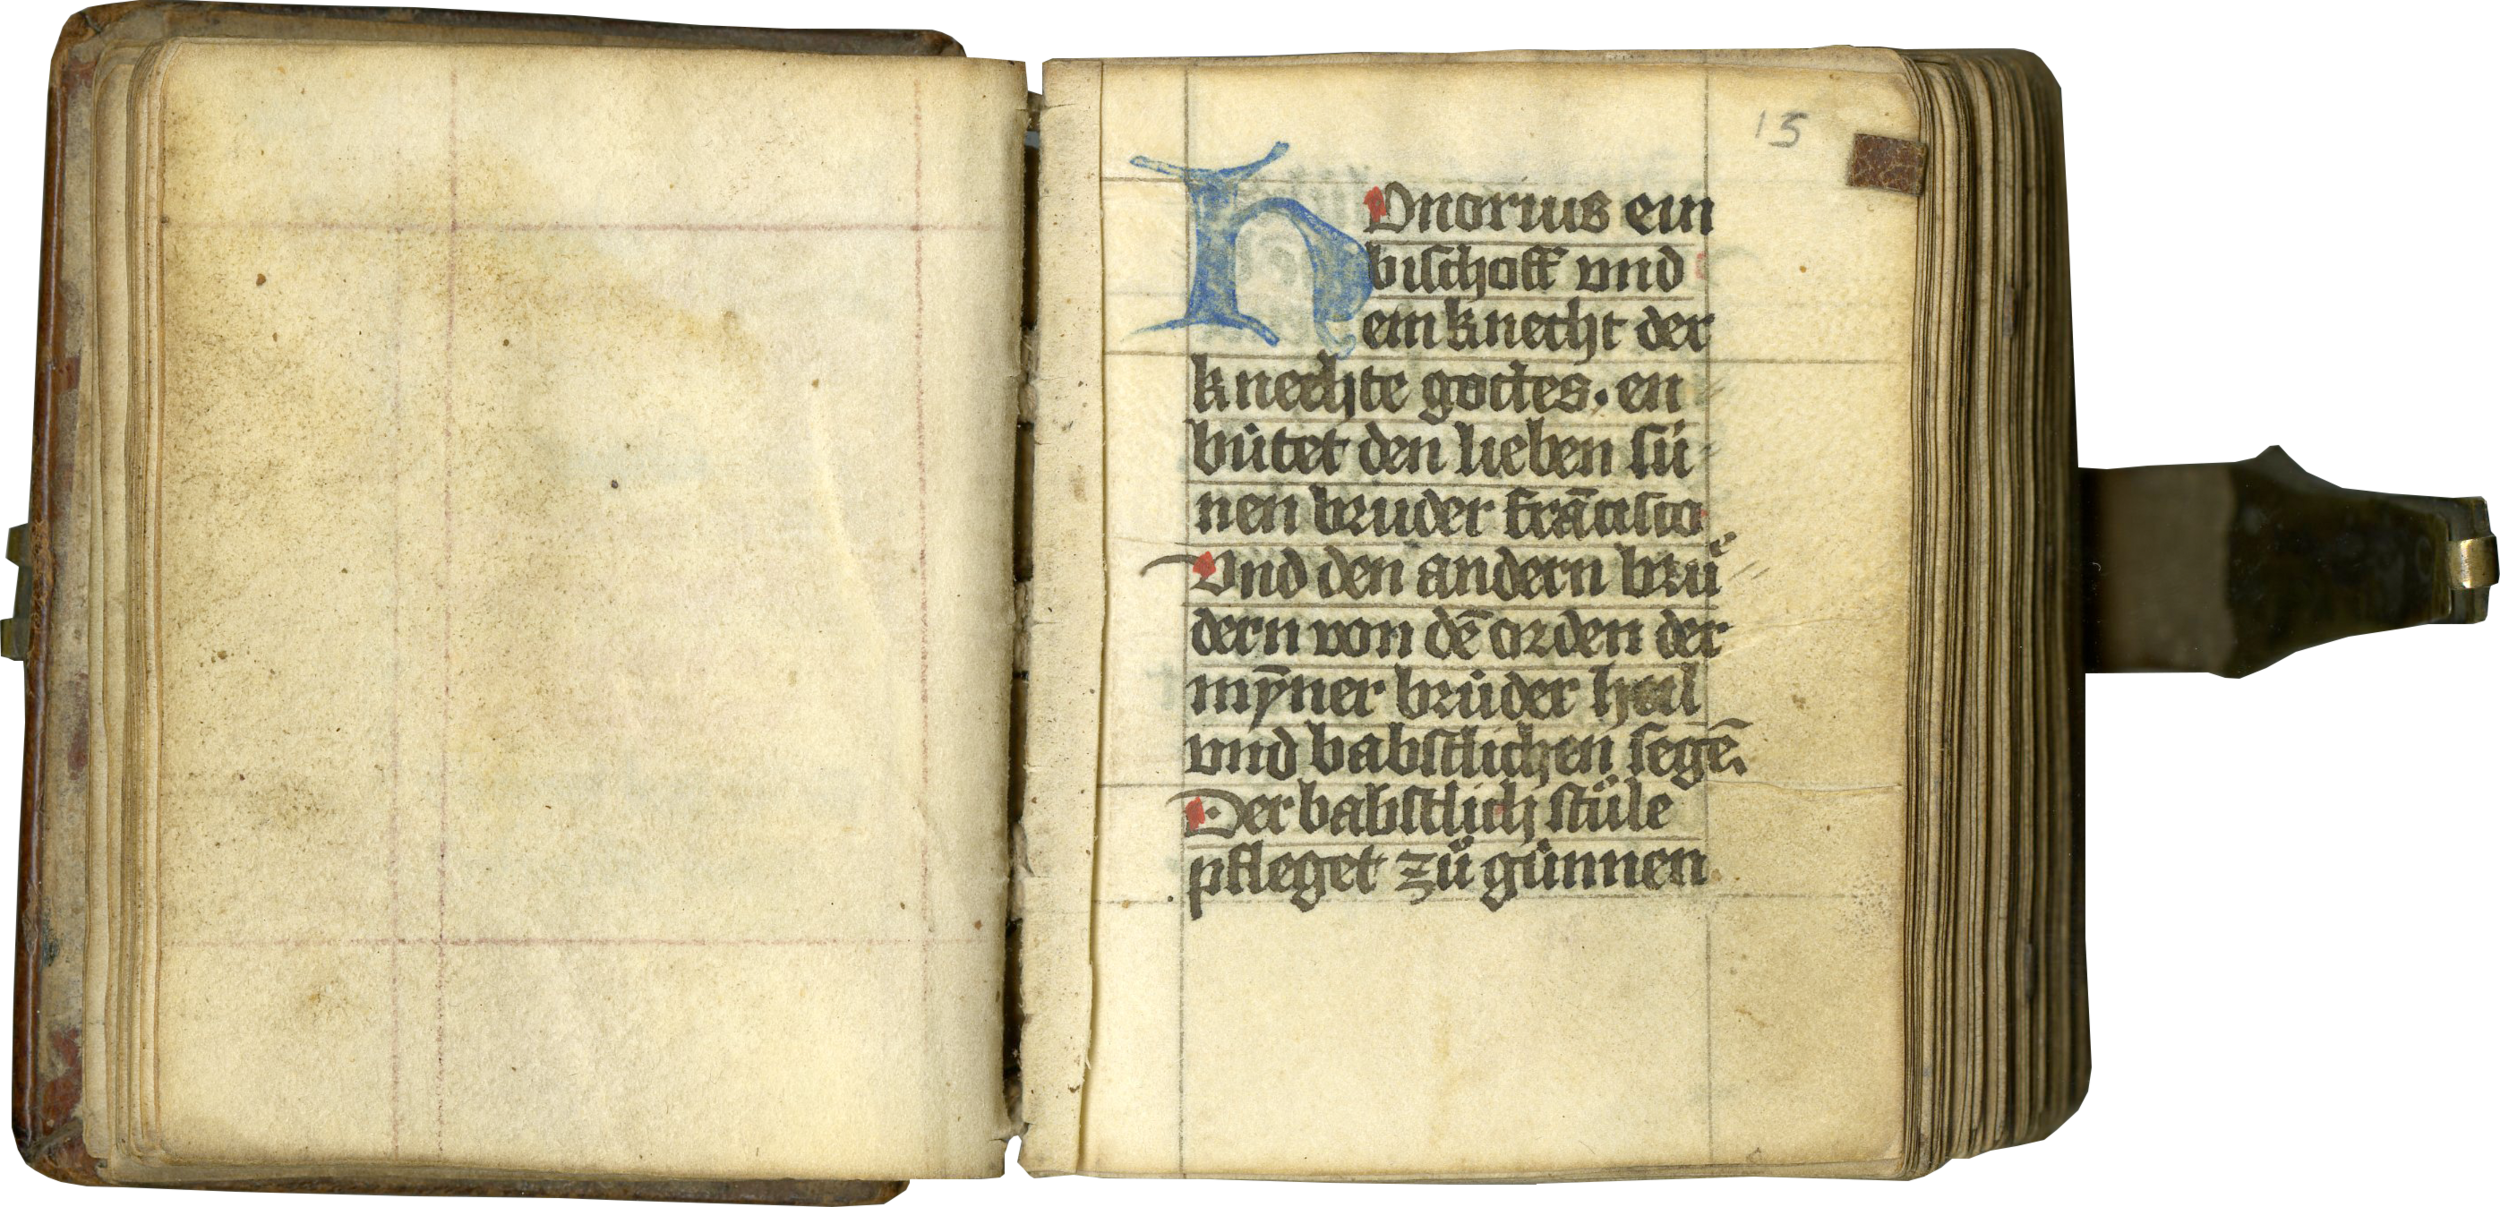 15
Honorius ein
bischoff vnd
ein knecht der
knechte gottes · en
bu̍tet den lieben su̍
nen bruder franciſco
Vnd den andern bruͤ
dern von dē orden der
mȳner bru̍der heil
vnd babſtlichen ſegē.
Der babſtlich ſtu̍le
pfleget zu̍ gu̍nnen